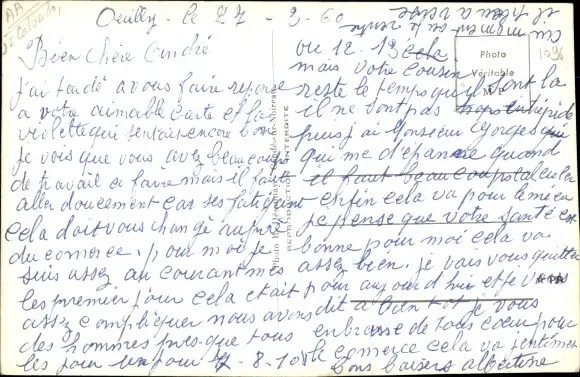 Ouilly. le 27 - 3-60
Bien Chère Andrée
J'ai tardé a vous faire reponse
a votre aimable Carte et la
violette qui sentais encore bon
je vois que vous avez beaucoup
de travail a faire mais il faut
aller doucement car ses fatigant
cela doit vous changé auprès
du comerce. pour moi je
suis assez au courant mes
les premier jour cela etait
assez compliquer nous avons
des hommes presque tous
les jour un jour 7-8-10
ou 12-13 cela
mais votre cousin
reste le temps qu'il sont la
il ne sont pas trop
puis j'ai Monsieur Gorges qui
qui me dépanne quand
il faut beaucoup calculer
enfin cela va pour le mieu
je pense que votre santé est
bonne pour moi cela va
assez bien. je vais vous quitter
pour aujourd'hui et je vous
dit a bientot je vous
embrasse de tous cœur pour
le comerce cela va
bons baisers albertine
au moment ou je
il pleu a verse
Photo
Véritable
1096
REPRODUCTION INTERDITE